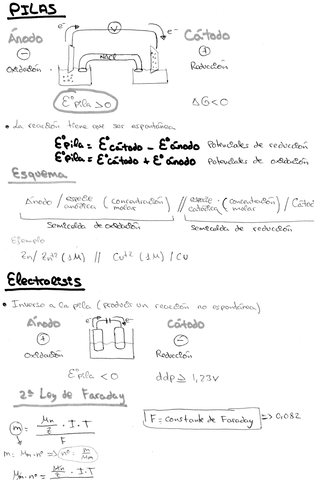 PILAS
e⁻ V e⁻
Ánodo Cátodo
⊖ NaCl ⊕
Oxidación Reducción
E°pila > 0 ΔG < 0
• La reacción tiene que ser espontánea
E°pila = E°cátodo - E°ánodo Potenciales de reducción
E°pila = E°cátodo + E°ánodo Potenciales de oxidación
Esquema
Ánodo / especie anódica (concentración molar) // especie catódica (concentración molar) / Cátod
Semicelda de oxidación Semicelda de reducción
Ejemplo
Zn / Zn⁺² (1M) // Cu⁺² (1M) / Cu
Electrolisis
• Inverso a la pila (producir un reacción no espontánea)
Ánodo e⁻ e⁻ Cátodo
⊕ ⊖
Oxidación Reducción
E°pila < 0 ddp ≥ 1,23V
2ª Ley de Faraday
m = Mm/z · I · T / F
F = constante de Faraday => 0,082
m = Mm · nº => nº = m/Mm
Mm · nº = Mm/z · I · T